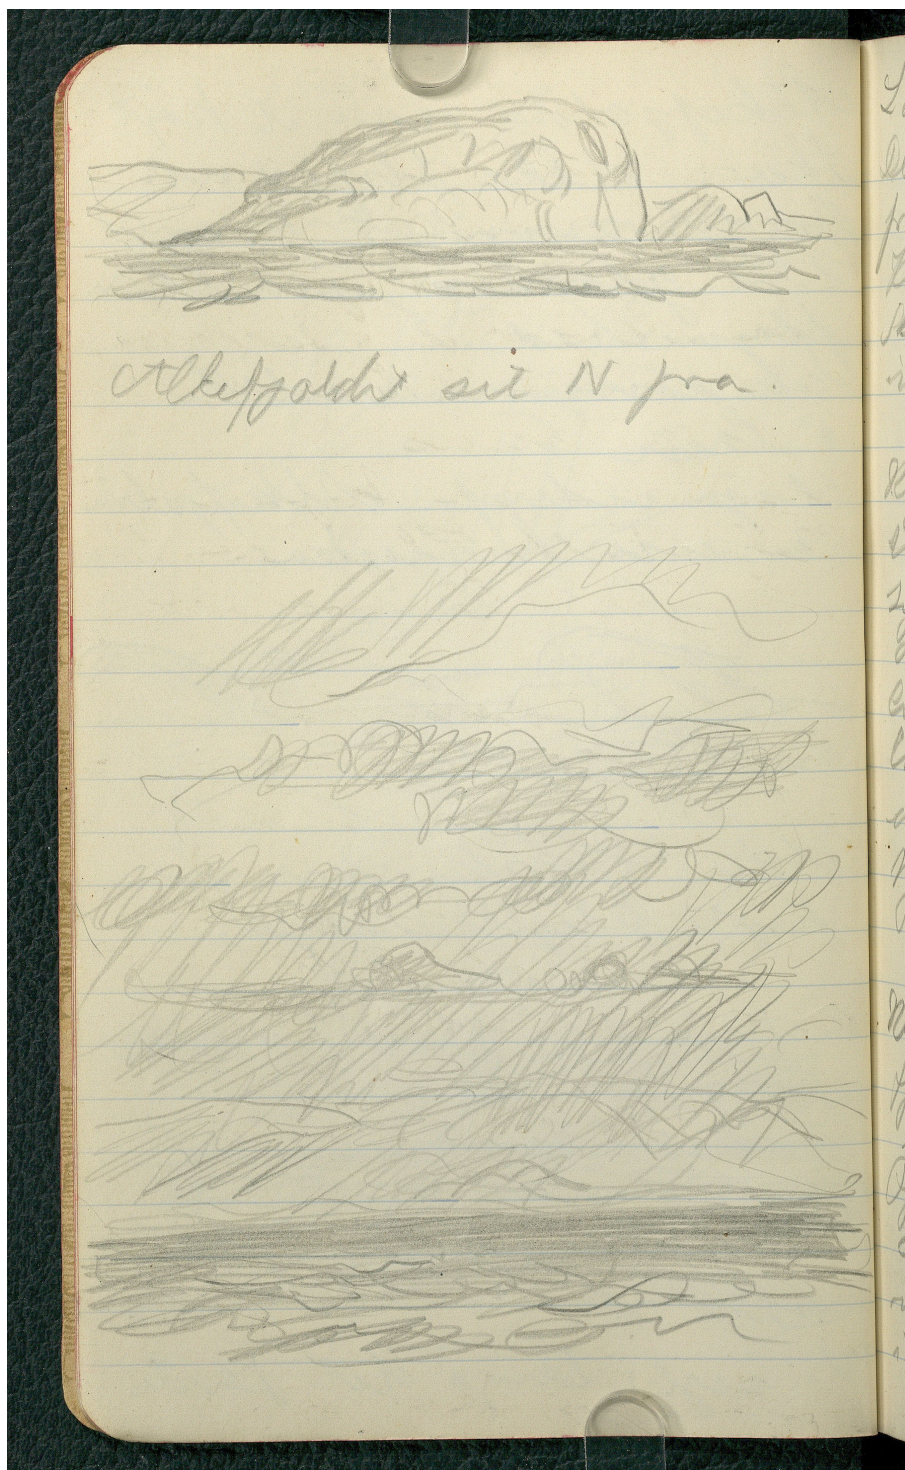 Alkefjeldet set N fra.